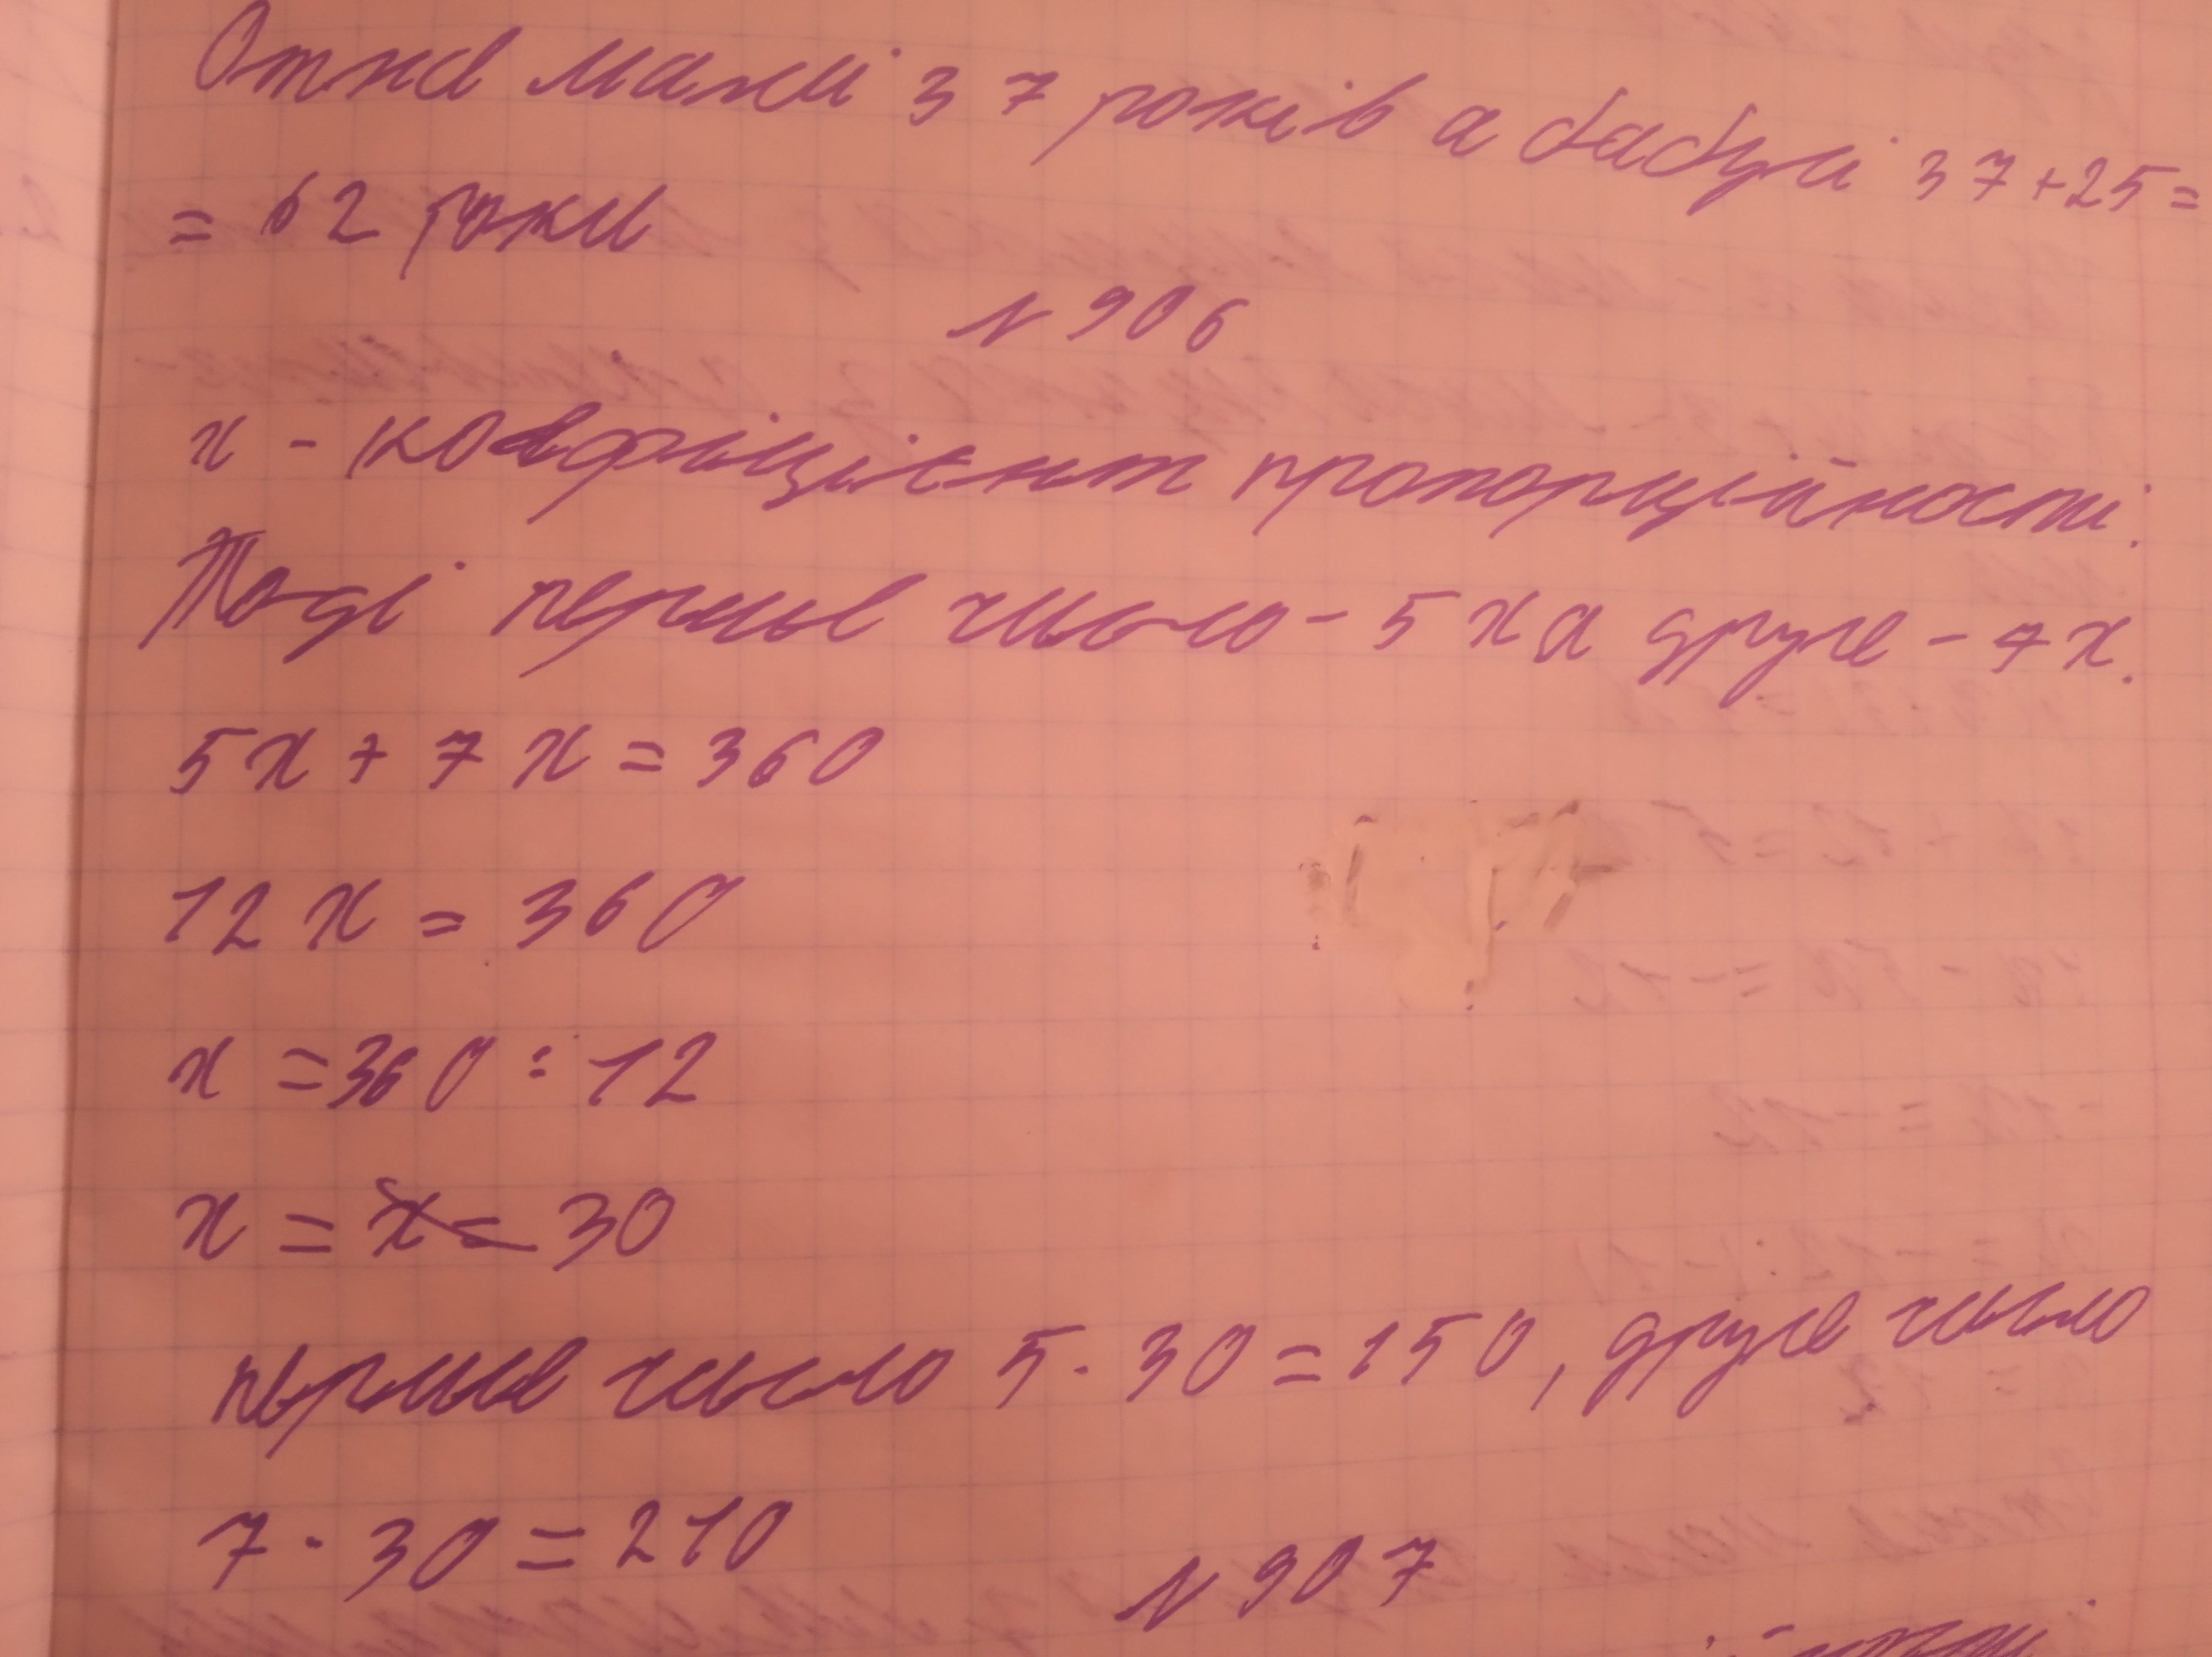 Отже мамі 37 років а дідусі 37+25=
= 62 роки
№ 906
х - коефіцієнт пропорційності.
Тоді перше число - 5х а друге - 7х.
5х + 7х = 360
12х = 360
х = 360 : 12
х = х = 30
перше число 5·30=150, друге число
7·30=210
№ 907